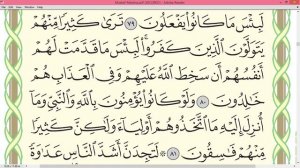 لَبِئْسَ مَا كَانُوا۟ يَفْعَلُونَ ٧٩ تَرَىٰ كَثِيرًا مِّنْهُمْ
يَتَوَلَّوْنَ ٱلَّذِينَ كَفَرُوا۟ لَبِئْسَ مَا قَدَّمَتْ لَهُمْ
أَنفُسُهُمْ أَن سَخِطَ ٱللَّهُ عَلَيْهِمْ وَفِى ٱلْعَذَابِ هُمْ
خَـٰلِدُونَ ٨٠ وَلَوْ كَانُوا۟ يُؤْمِنُونَ بِٱللَّهِ وَٱلنَّبِىِّ وَمَآ
أُنزِلَ إِلَيْهِ مَا ٱتَّخَذُوهُمْ أَوْلِيَآءَ وَلَـٰكِنَّ كَثِيرًا
مِّنْهُمْ فَـٰسِقُونَ ٨١ ۞ لَتَجِدَنَّ أَشَدَّ ٱلنَّاسِ عَدَٰوَةً